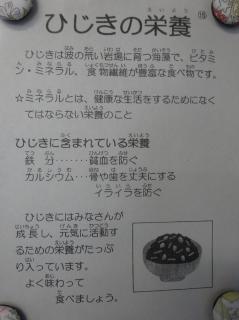 ひじきの栄養 ⑮
ひじきは波の荒い岩場に育つ海藻で、ビタミ
ン・ミネラル、食物繊維が豊富な食べ物です。
☆ミネラルとは、健康な生活をするためになく
てはならない栄養のこと
ひじきに含まれている栄養
鉄 分………貧血を防ぐ
カルシウム……骨や歯を丈夫にする
イライラを防ぐ
ひじきにはみなさんが
成長し、元気に活動す
るための栄養がたっぷ
り入っています。
よく味わって
食べましょう。